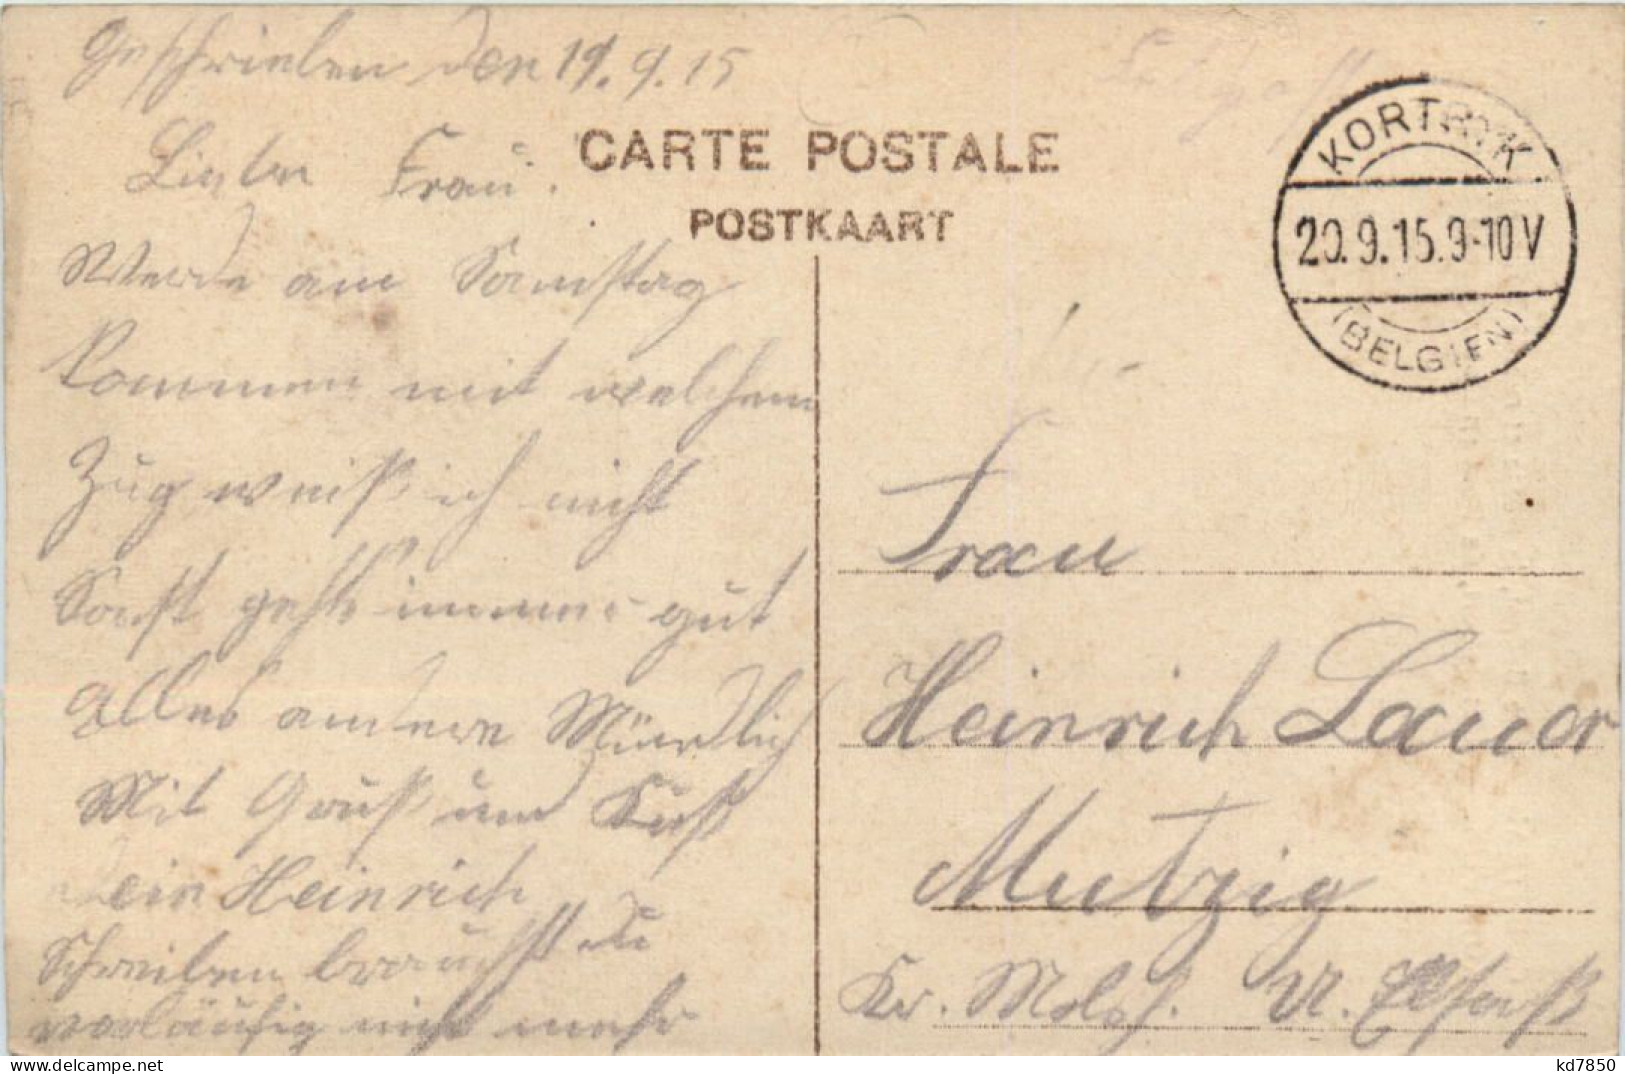 Geschrieben den 19.9.15
Liebe Frau.
Werde am Samstag
kommen mit welchem
Zug weiß ich nicht
Sonst gehts immer gut
alles andere Mündlich
Mit Gruß und Kuß
dein Heinrich
Schreiben brauchst du
vorläufig nicht mehr
Feldpost
CARTE POSTALE
POSTKAART
KORTRYK
20.9.15.9-10V
(BELGIEN)
Frau
Heinrich Lauer
Mutzig
Kr. Molsh. U. Elsaß
My-Postcard
kd7850